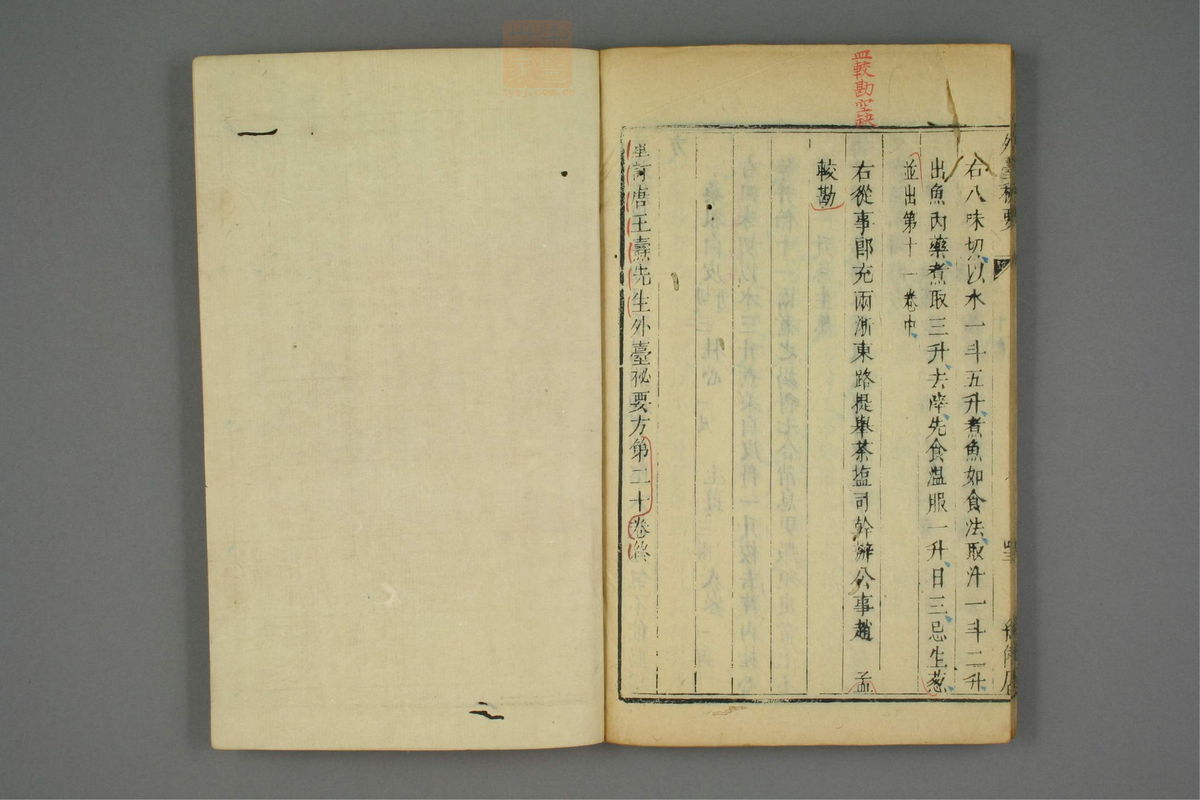 右八味切以水一斗五升煮魚如食法取汁一斗二升
出魚内藥煮取三升去滓先食温服一升日三忌生葱
並出第十一卷中
右從事郎充兩浙東路提舉茶塩司幹辦公事趙 孟
較勘
訂唐王燾先生外臺秘要方第二十卷終
較勘空缺
外臺秘要